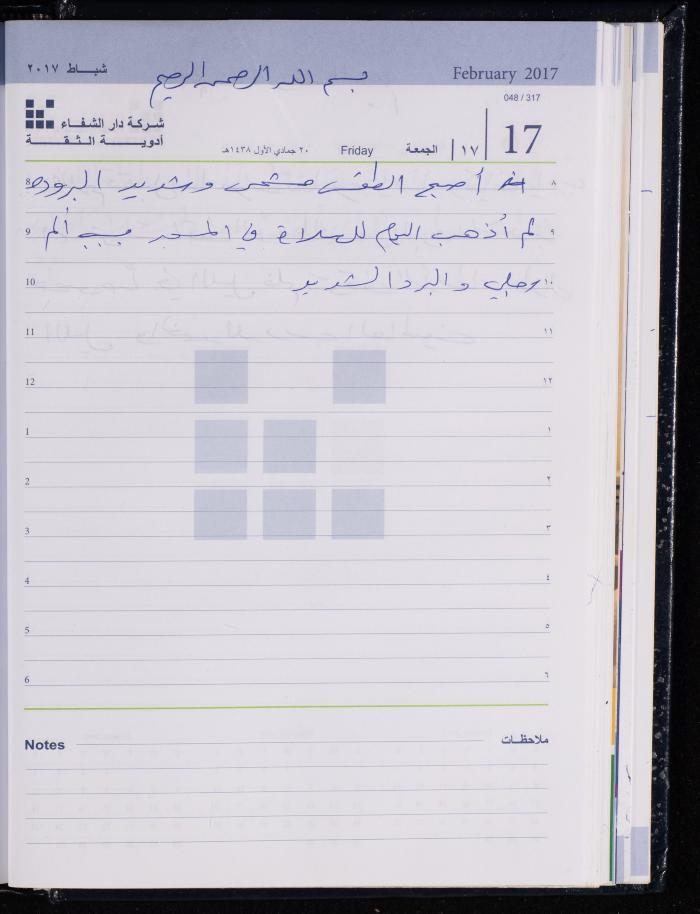 شباط ٢٠١٧
بسم الله الرحمن الرحيم
February 2017
048 / 317
شركة دار الشفاء
أدويـة الثقـة
17
١٧
الجمعة
Friday
٢٠ جمادي الأول ١٤٣٨هـ
8 أصبح الطقس مشمس وشديد البروده ٨
9 لم أذهب اليوم للصلاة في المسجد بسبب ألم ٩
10 رجلي والبرد الشديد ١٠
11 ١١
12 ١٢
1 ١
2 ٢
3 ٣
4 ٤
5 ٥
6 ٦
Notes ملاحظـات